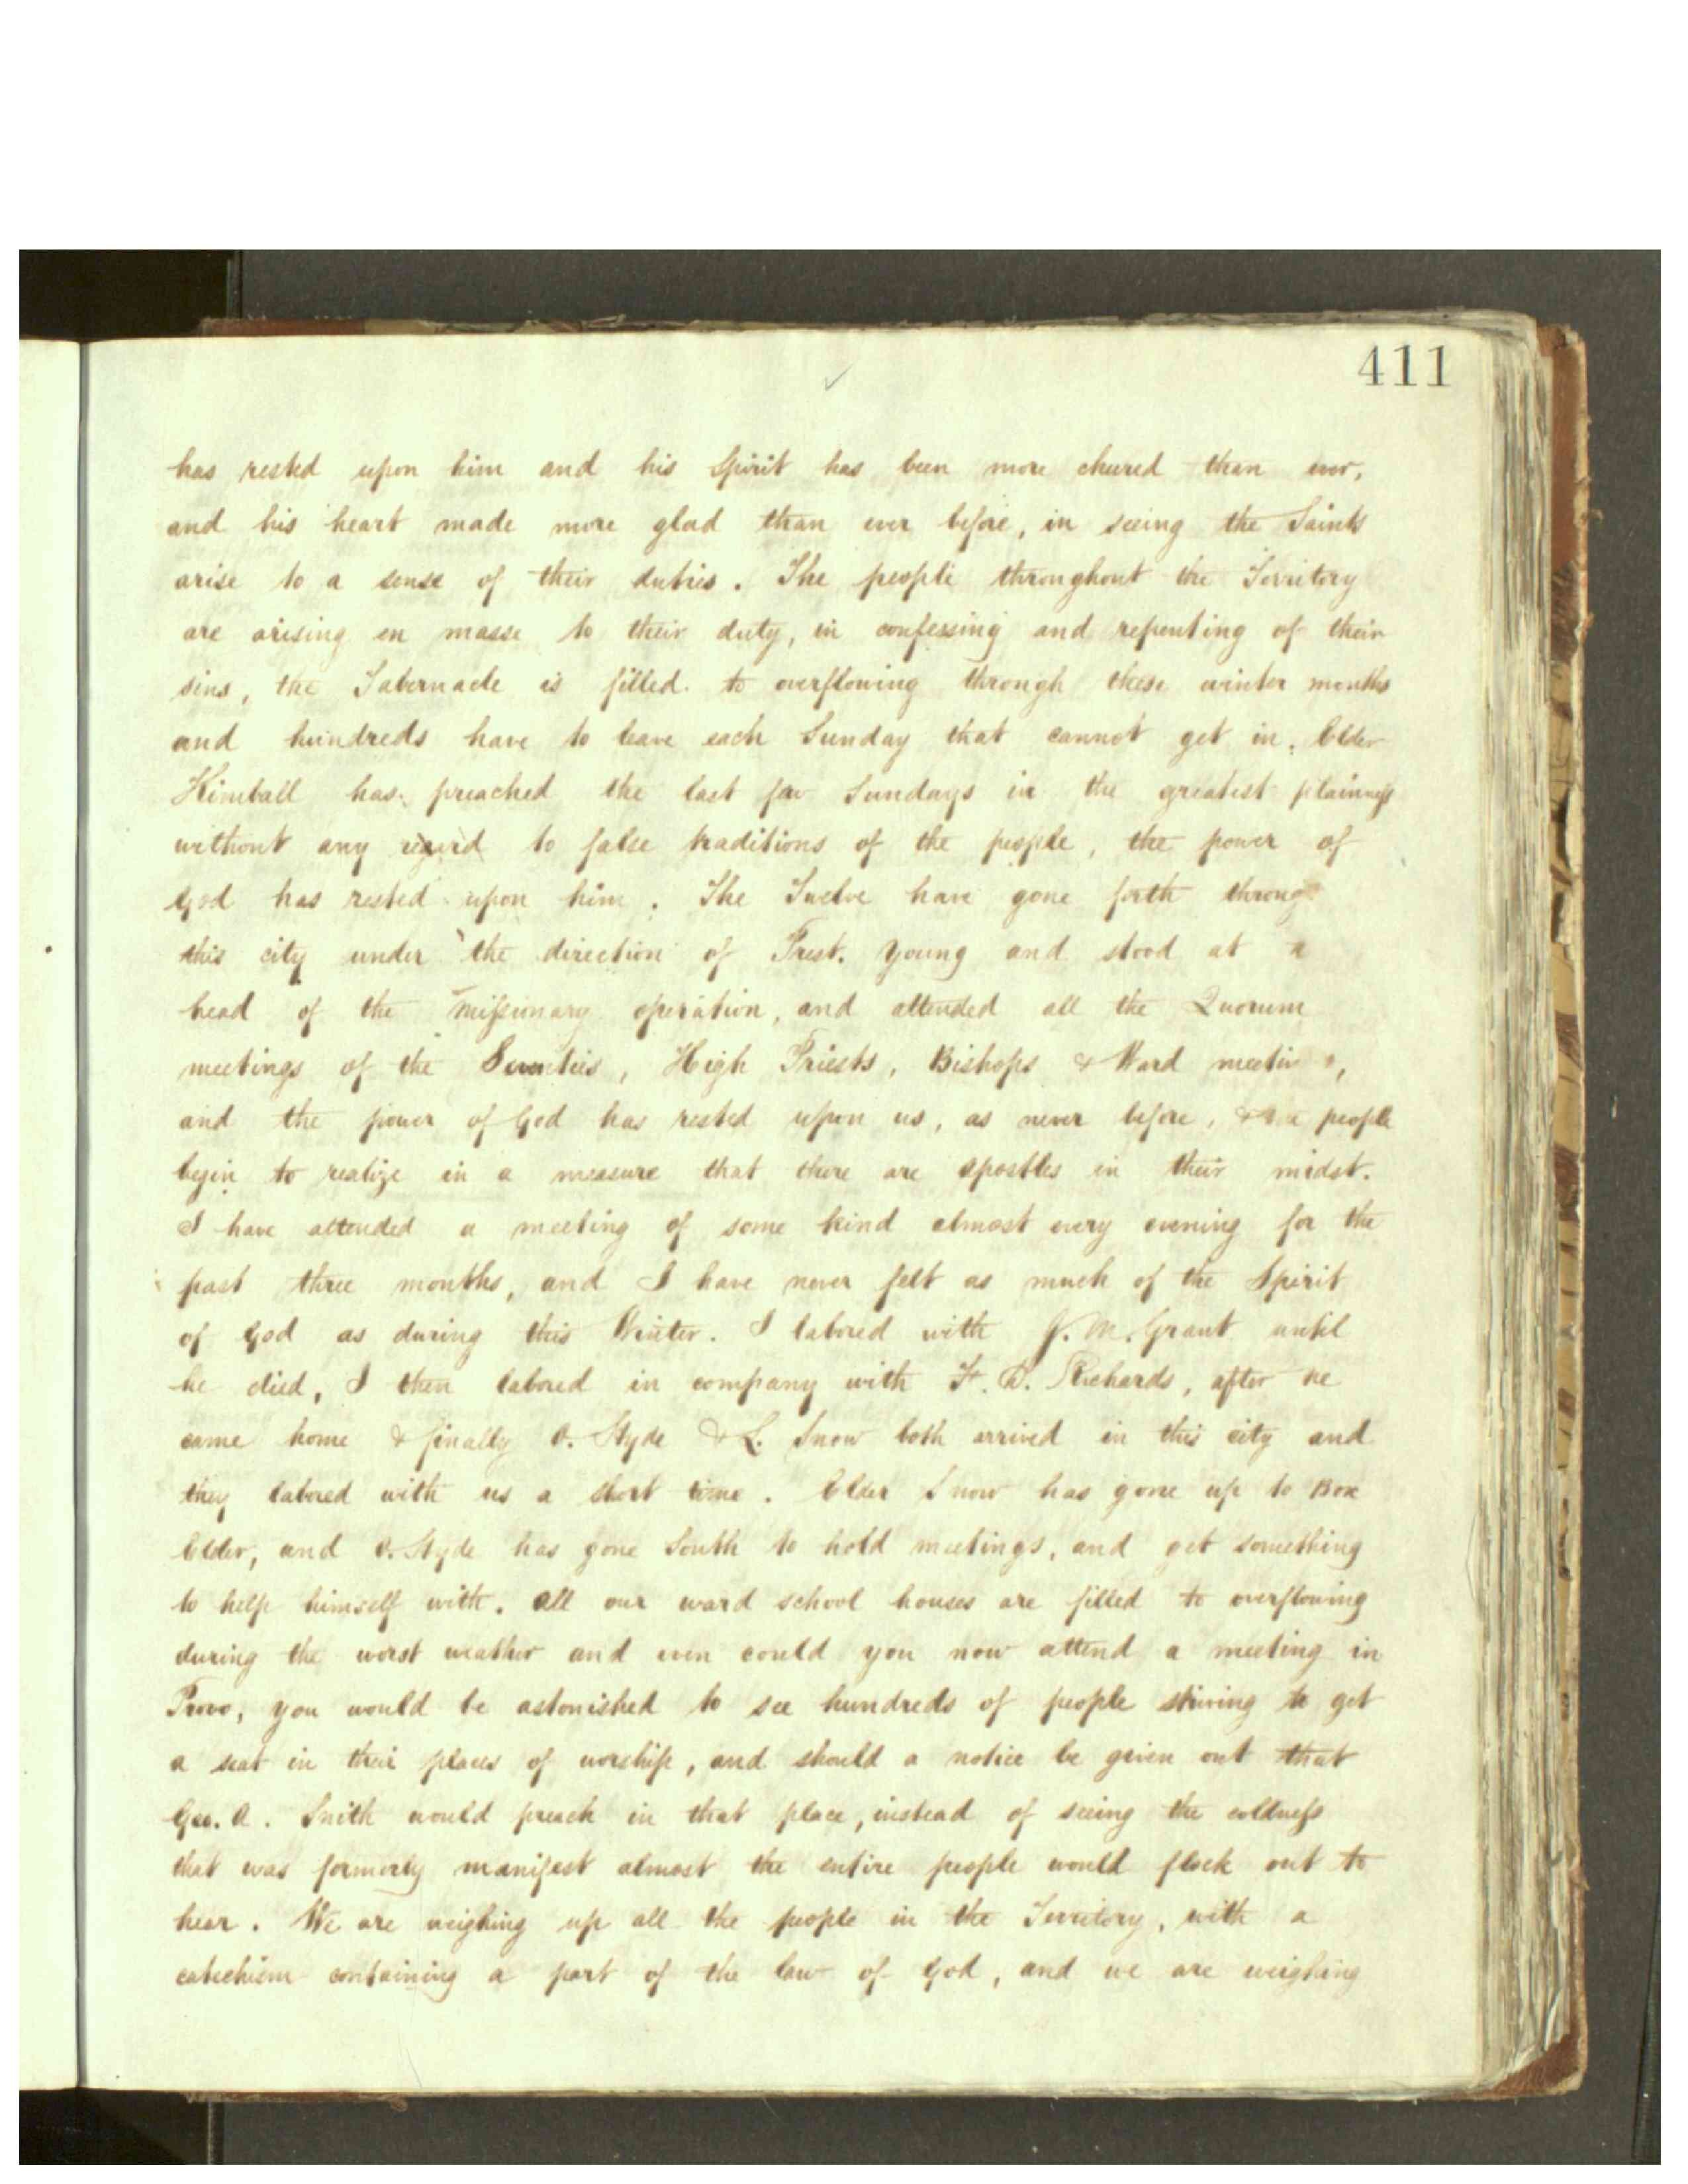 411
has rested upon him and his Spirit has been more cheered than ever,
and his heart made more glad than ever before, in seeing the Saints
arise to a sense of their duties. The people throughout the Territory
are arising en masse to their duty, in confessing and repenting of their
sins, the Tabernacle is filled to overflowing through these winter months
and hundreds have to leave each Sunday that cannot get in. Elder
Kimball has preached the last few Sundays in the greatest plainness
without any regard to false traditions of the people, the power of
God has rested upon him. The Twelve have gone forth throug
this city under the direction of Prest. Young and stood at a
head of the missionary operation, and attended all the Quorum
meetings of the Seventies, High Priests, Bishops & Ward meetin s,
and the power of God has rested upon us, as never before, & people
begin to realize in a measure that there are apostles in their midst.
I have attended a meeting of some kind almost every evening for the
past three months, and I have never felt as much of the Spirit
of God as during this Winter. I labored with J. M. Grant until
he died, I then labored in company with F. D. Richards, after he
came home & finally O. Hyde & L. Snow both arrived in this city and
they labored with us a short time. Elder Snow has gone up to Box
Elder, and O. Hyde has gone South to hold meetings, and get something
to help himself with. All our ward school houses are filled to overflowing
during the worst weather and even could you now attend a meeting in
Provo, you would be astonished to see hundreds of people striving to get
a seat in their places of worship, and should a notice be given out that
Geo. A. Smith would preach in that place, instead of seeing the coldness
that was formerly manifest almost the entire people would flock out to
hear. We are weighing up all the people in the Territory, with a
catechism containing a part of the law of God, and we are weighing